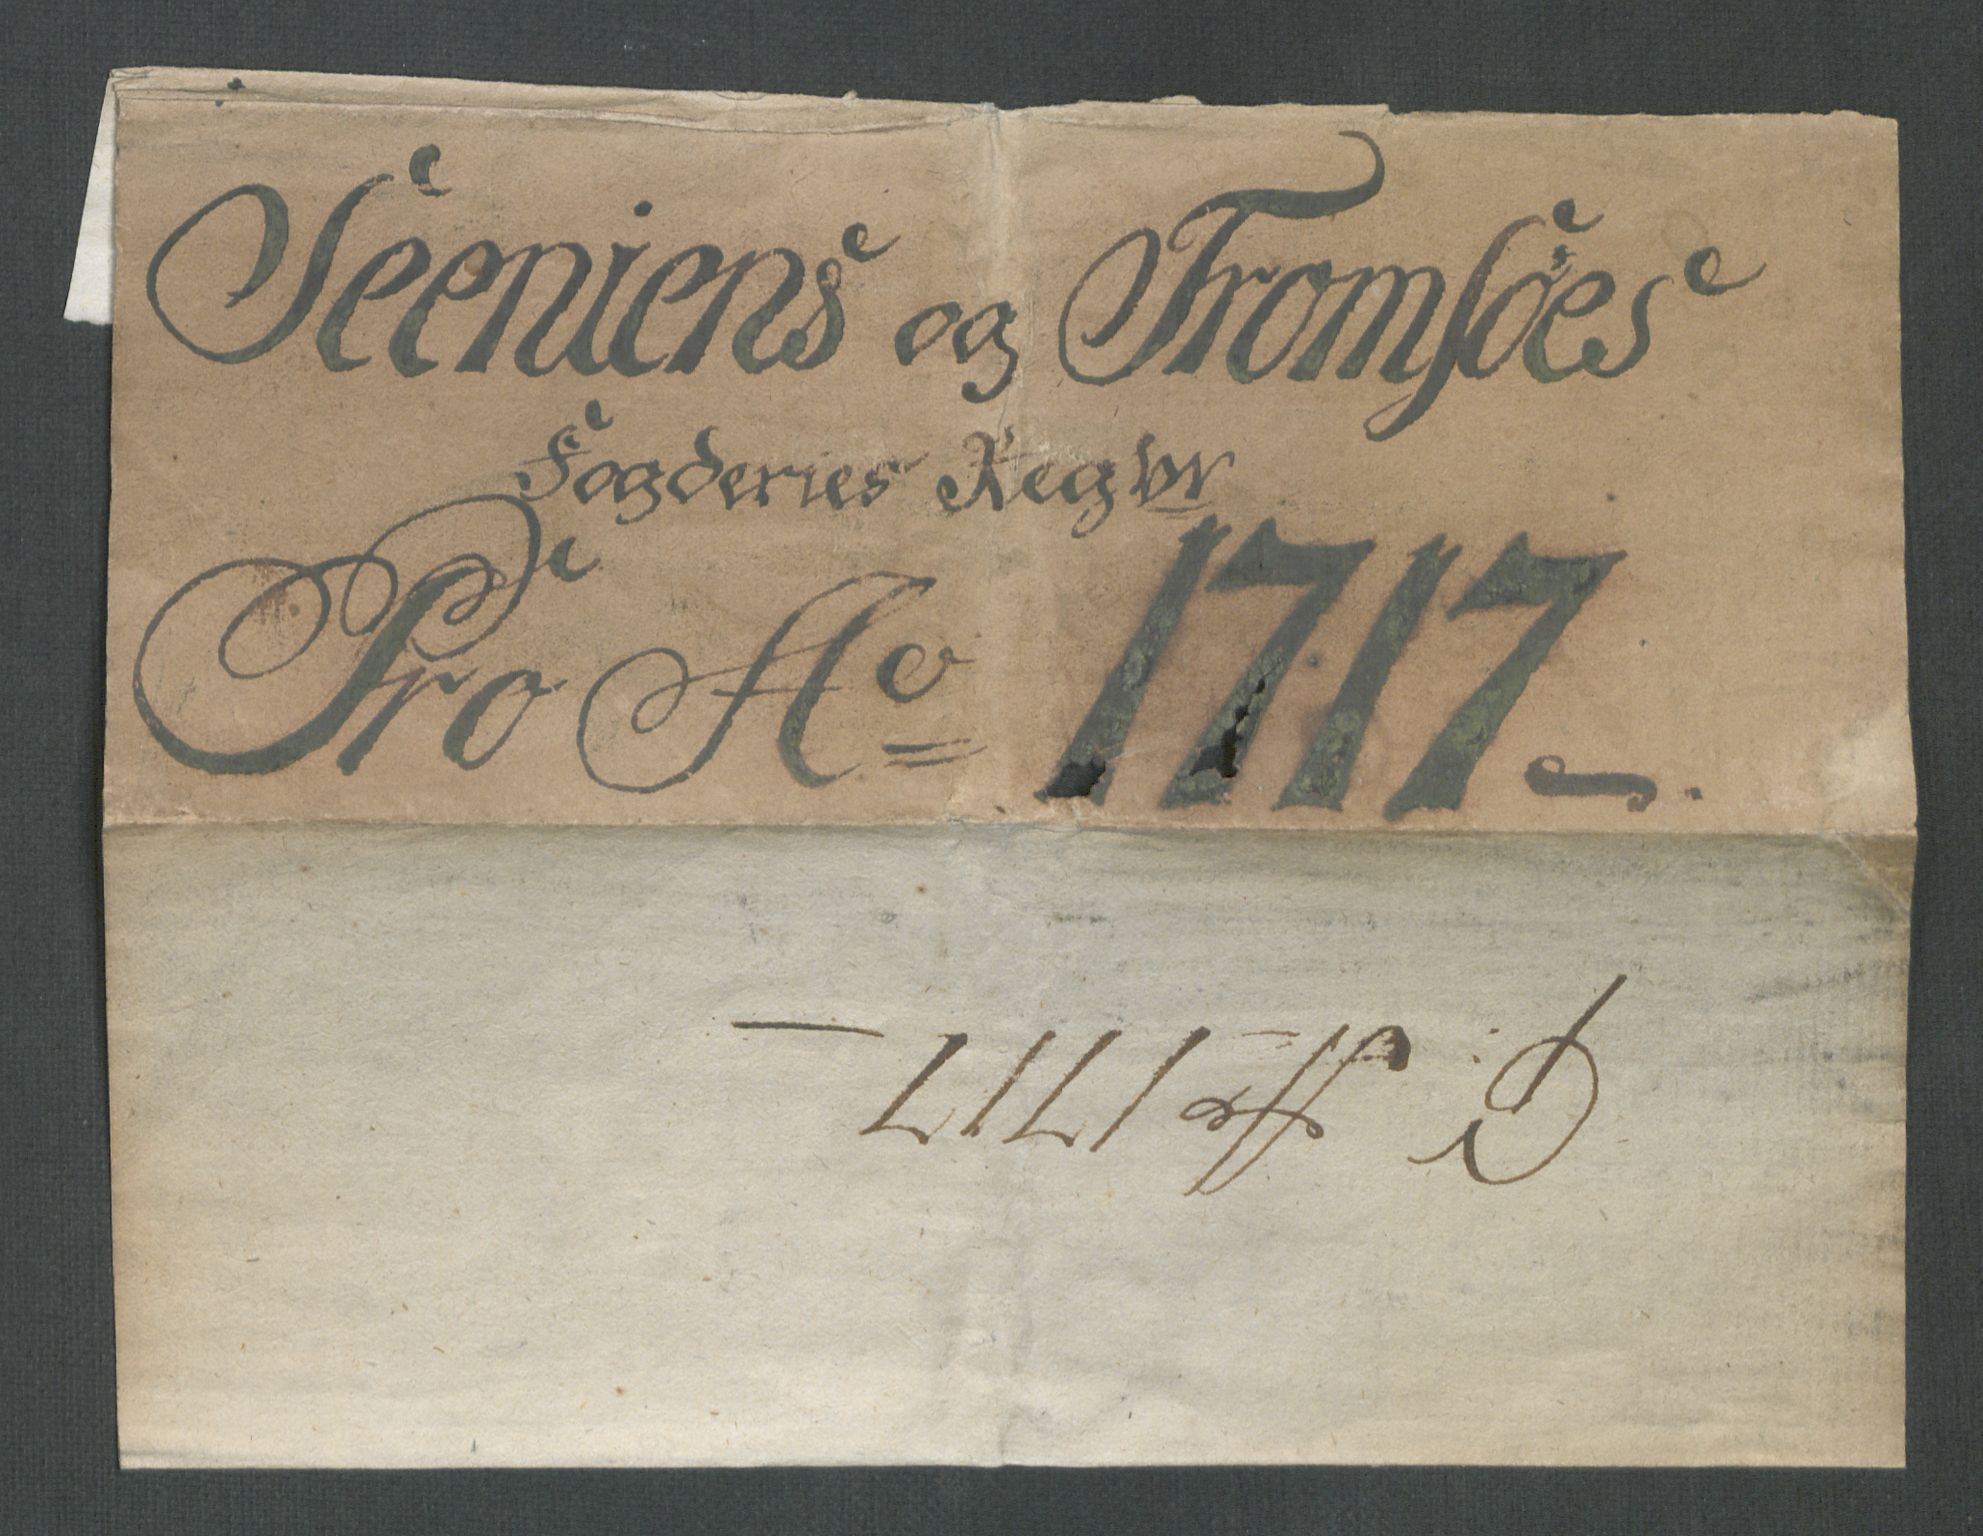 Seeniens og Tromsøes
Fogderies Regbr
Pro Ao 1717
P: Ao 1717